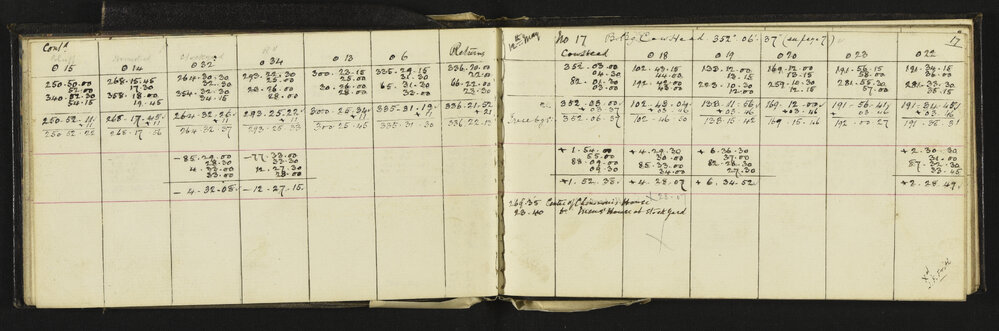 Cont'd
Returns
⊙ 15 ⊙ 14 ⊙ 32 ⊙ 34 ⊙ 13 ⊙ 6
250.50.00 268.15.45 264.30.30 293.22.30 300.23.15 335.29.15 336.20.00
52.00 17.00 32.30 25.00 25.00 31.30 22.00
340.52.30 358.18.00 354.32.30 23.26.00 30.26.00 65.31.30 66.22.00
54.15 19.45 34.15 28.00 28.00 32.00 23.30
250.52.11 268.17.45 264.32.26 293.25.22 300.25.34 335.31.19 336.21.52
+11 +11 +11 +11 +11 +11 +21
250.52.22 268.17.56 264.32.37 293.25.33 300.25.45 335.31.30 336.22.13
-85.29.00 -77.33.00
28.30 33.30
4.33.00 12.27.30
33.00 28.00
-4.32.08 -12.27.15
12th May No 17 Brg Cowhead 352° 06' 37" (su page 7) 17
Cowhead ⊙ 18 ⊙ 19 ⊙ 20 ⊙ 23 ⊙ 22
352.03.00 102.43.15 138.12.00 169.12.00 191.56.15 191.34.15
04.30 44.00 13.15 13.15 58.00 36.00
82.01.30 192.42.00 223.10.30 259.10.30 281.55.30 281.33.30
03.00 43.00 12.00 12.15 57.00 35.15
352.03.00 102.43.04 138.11.56 169.12.00 191.56.41 191.34.45
+03.37 +03.46 +03.46 +03.46 +03.46
True bgs. 352.06.37 102.46.50 138.15.42 169.15.46 192.00.27 191.38.31
+1.54.00 +4.29.30 +6.36.30 +2.30.30
55.00 30.00 37.00 31.00
88.09.00 85.33.00 83.28.30 87.32.30
09.30 34.00 27.30 33.45
+1.52.38 +4.28.07 +6.34.52 +2.28.49
269.35 Centre of Chinaman's House
23.40 to Mens' House at stock yard